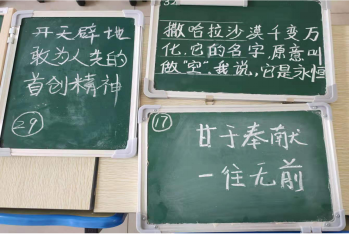 开天辟地
敢为人先的
首创精神
29
撒哈拉沙漠千变万
化.它的名字,原意叫
做"空".我说,它是永恒
17
甘于奉献
一往无前